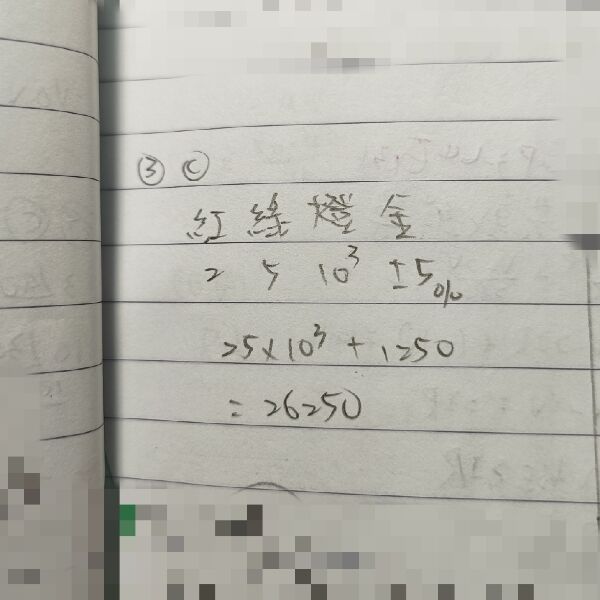 ③ C
紅 綠 橙 金
2 5 10³ ±5%
25×10³ + 1250
= 26250